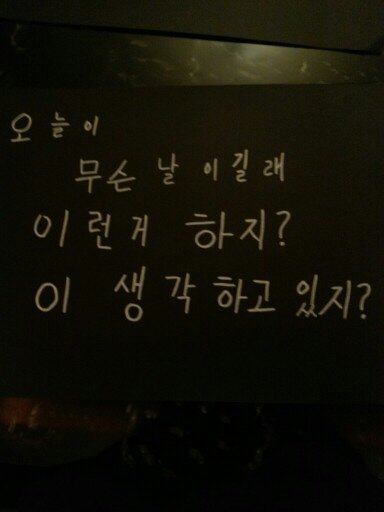 오늘이
무슨 날 이길래
이런게 하지?
이 생각 하고 있지?